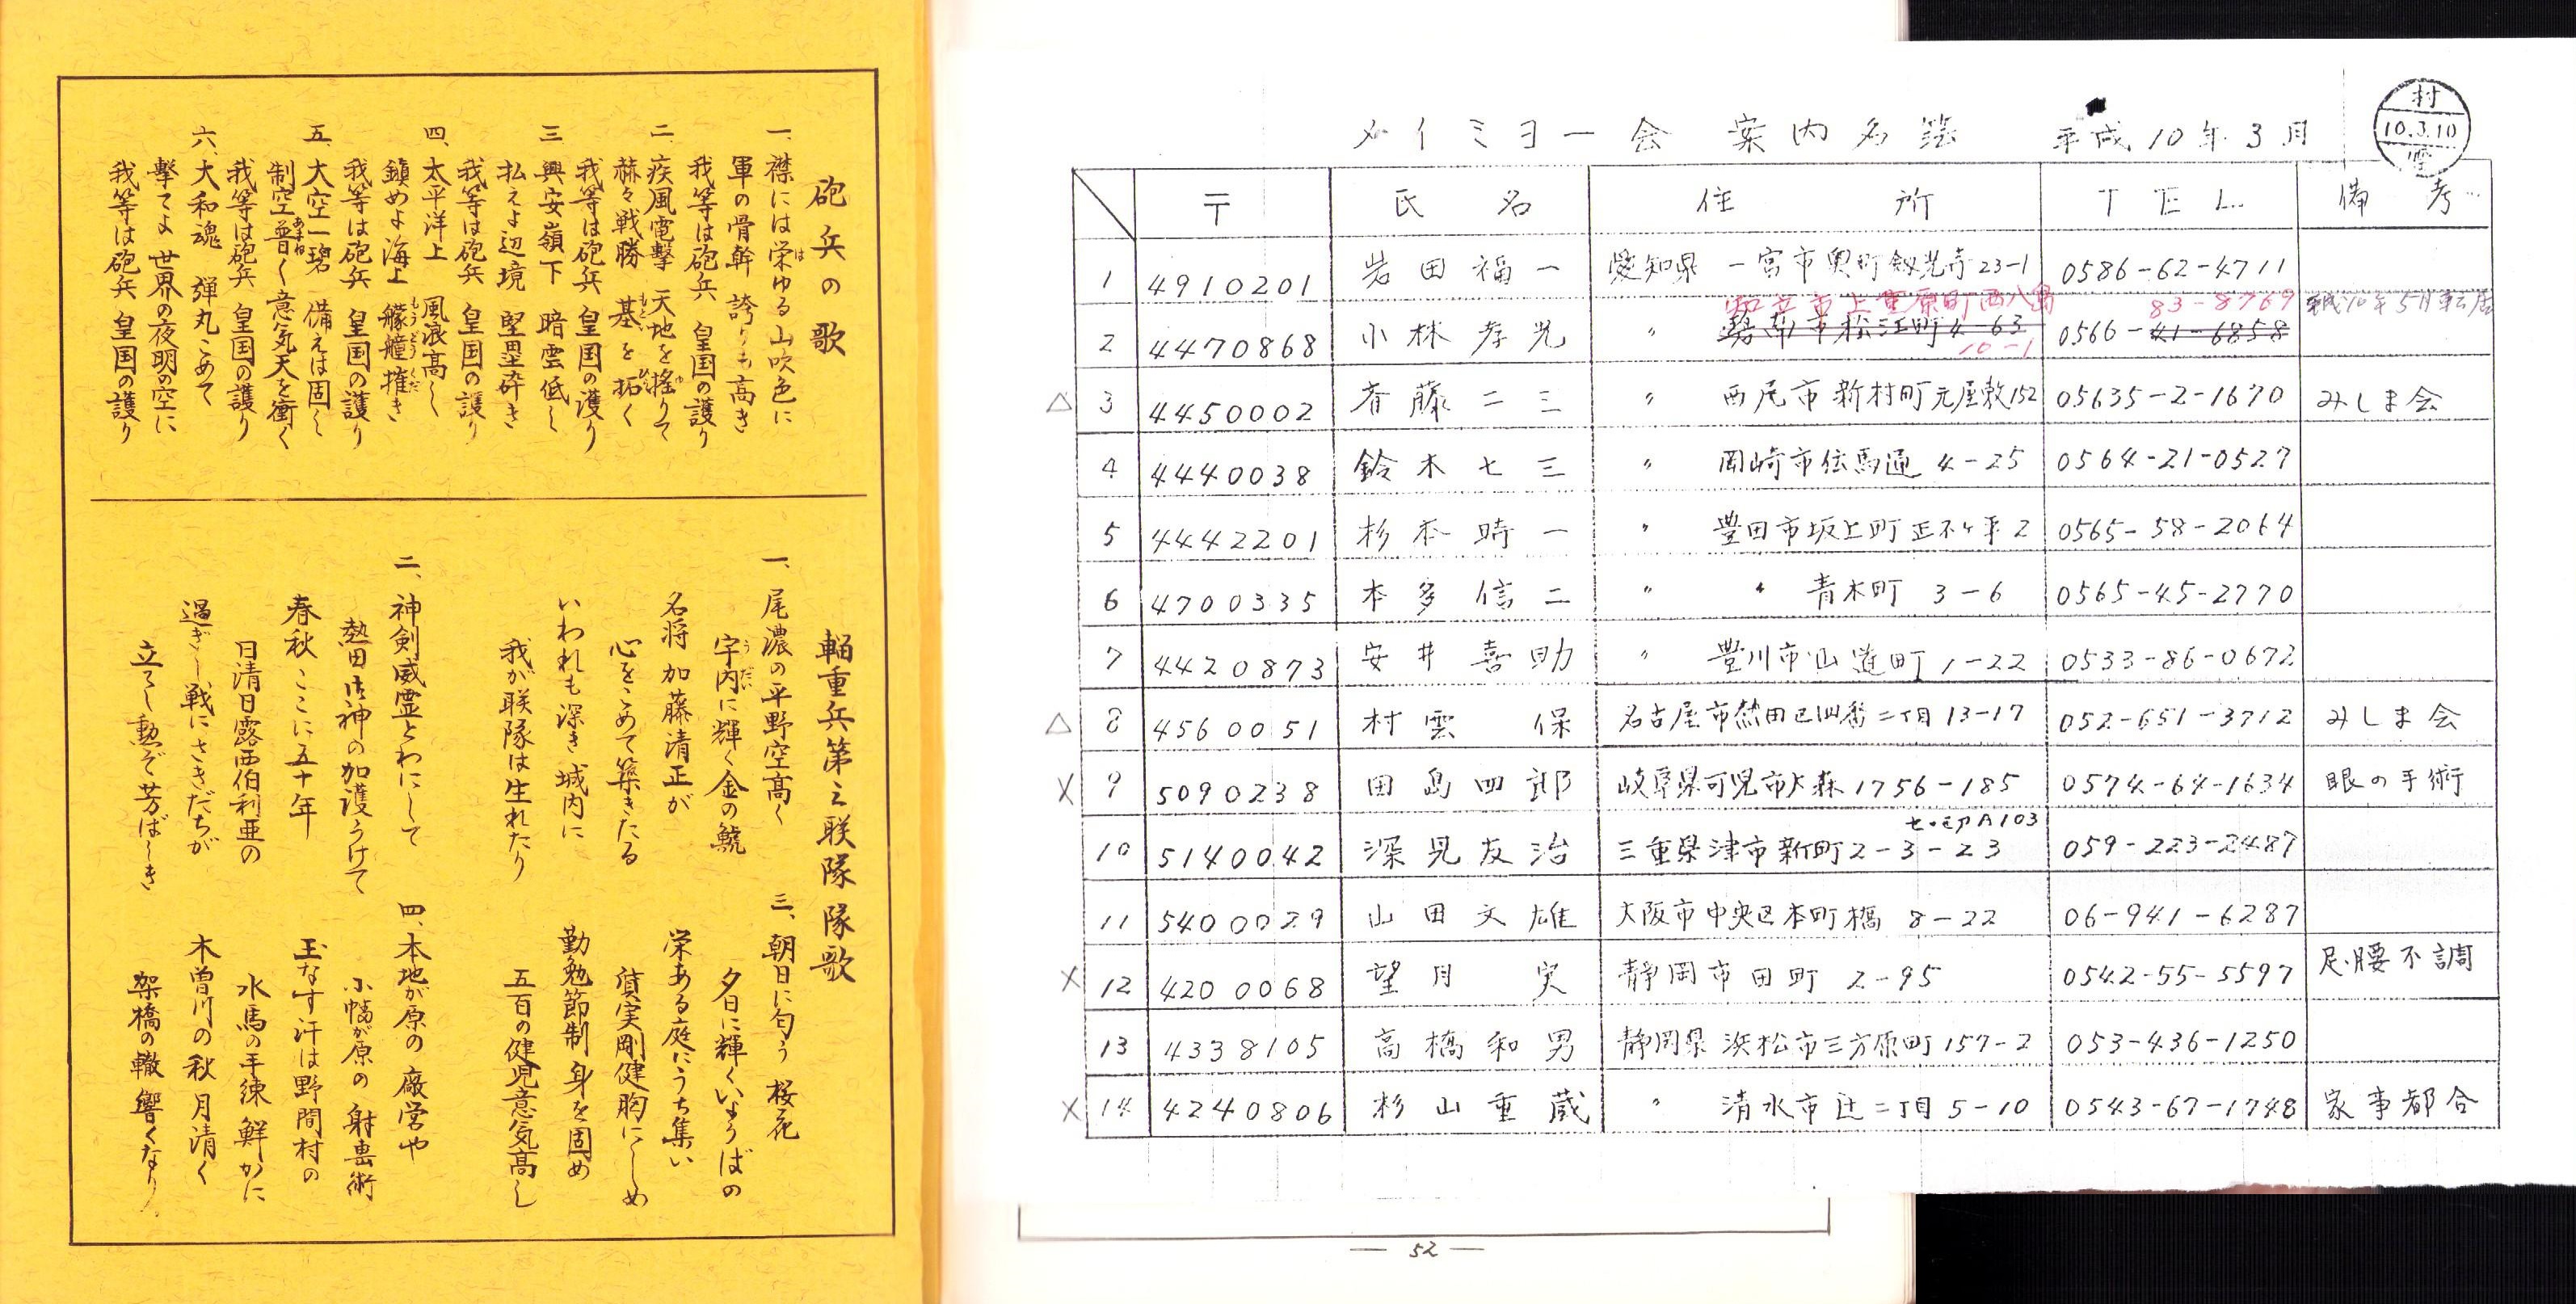 砲兵の歌
一、襟には栄ゆる山吹色に
軍の骨幹 誇りも高き
我等は砲兵 皇国の護り
二、疾風電撃 天地を搖りて
赫々戦勝 基を拓く
我等は砲兵 皇国の護り
三、興安嶺下 暗雲低し
払えよ辺境 堅塁砕き
我等は砲兵 皇国の護り
四、太平洋上 風浪高し
鎮めよ海上 艨艟摧き
我等は砲兵 皇国の護り
五、大空一碧 備えは固し
制空普く意気天を衝く
我等は砲兵 皇国の護り
六、大和魂 弾丸こめて
撃てよ 世界の夜明の空に
我等は砲兵 皇国の護り
輜重兵第三聯隊隊歌
一、尾濃の平野空高く
宇内に輝く金の鯱
名将 加藤清正が
心をこめて築きたる
いわれも深き城内に
我が聯隊は生れたり
二、神剣威霊とわにして
熱田御神の加護うけて
春秋ここに五十年
日清日露西伯利亜の
過ぎし戦にさきだちが
立てし勲ぞ芳ばしき
三、朝日に匂う桜花
夕日に輝くいちょうばの
栄ある庭にうち集い
質実剛健胸にしめ
勤勉節制身を固め
五百の健児意気高し
四、本地が原の廠営や
小幡が原の射撃術
玉なす汗は野間村の
水馬の手練鮮かに
木曽川の秋月清く
架橋の轍響くなり
メイミヨー会 案内名簿 平成10年3月
村 10.3.10 雲
〒 氏名 住所 TEL 備考
1 4910201 岩田福一 愛知県 一宮市奥町剱光寺23-1 0586-62-4711
知立市上重原町西八鳥 83-8769 平成10年5月転居
2 4470868 小林孝光 〃 碧南市松江町4-63 0566-41-6858
10-1
△ 3 4450002 斉藤二三 〃 西尾市新村町元屋敷152 05635-2-1670 みしま会
4 4440038 鈴木七三 〃 岡崎市伝馬通 4-25 0564-21-0527
5 4442201 杉本時一 〃 豊田市坂上町 2 0565-58-2064
6 4700335 本多信二 〃 〃 青木町 3-6 0565-45-2770
7 4420873 安井喜助 〃 豊川市山道町 1-22 0533-86-0672
△ 8 4560051 村雲 保 名古屋市熱田区四番二丁目13-17 052-651-3712 みしま会
X 9 5090238 田島四郎 岐阜県可児市大森1756-185 0574-64-1634 眼の手術
A103
10 5140042 深見友治 三重県津市新町2-3-23 059-223-2487
11 5400029 山田文雄 大阪市中央区本町橋 8-22 06-941-6287
X 12 4200068 望月 実 静岡市田町 2-95 0542-55-5597 足腰不調
13 4338105 高橋和男 静岡県浜松市三方原町157-2 053-436-1250
X 14 4240806 杉山重蔵 〃 清水市辻二丁目5-10 0543-67-1748 家事都合
— 52 —